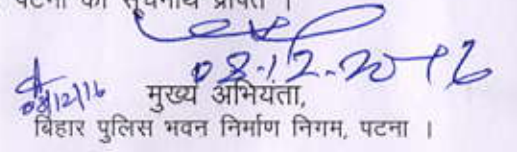 पटना को सूचनार्थ प्रेषित ।
08.12.2016
08/12/16
मुख्य अभियंता,
बिहार पुलिस भवन निर्माण निगम, पटना ।